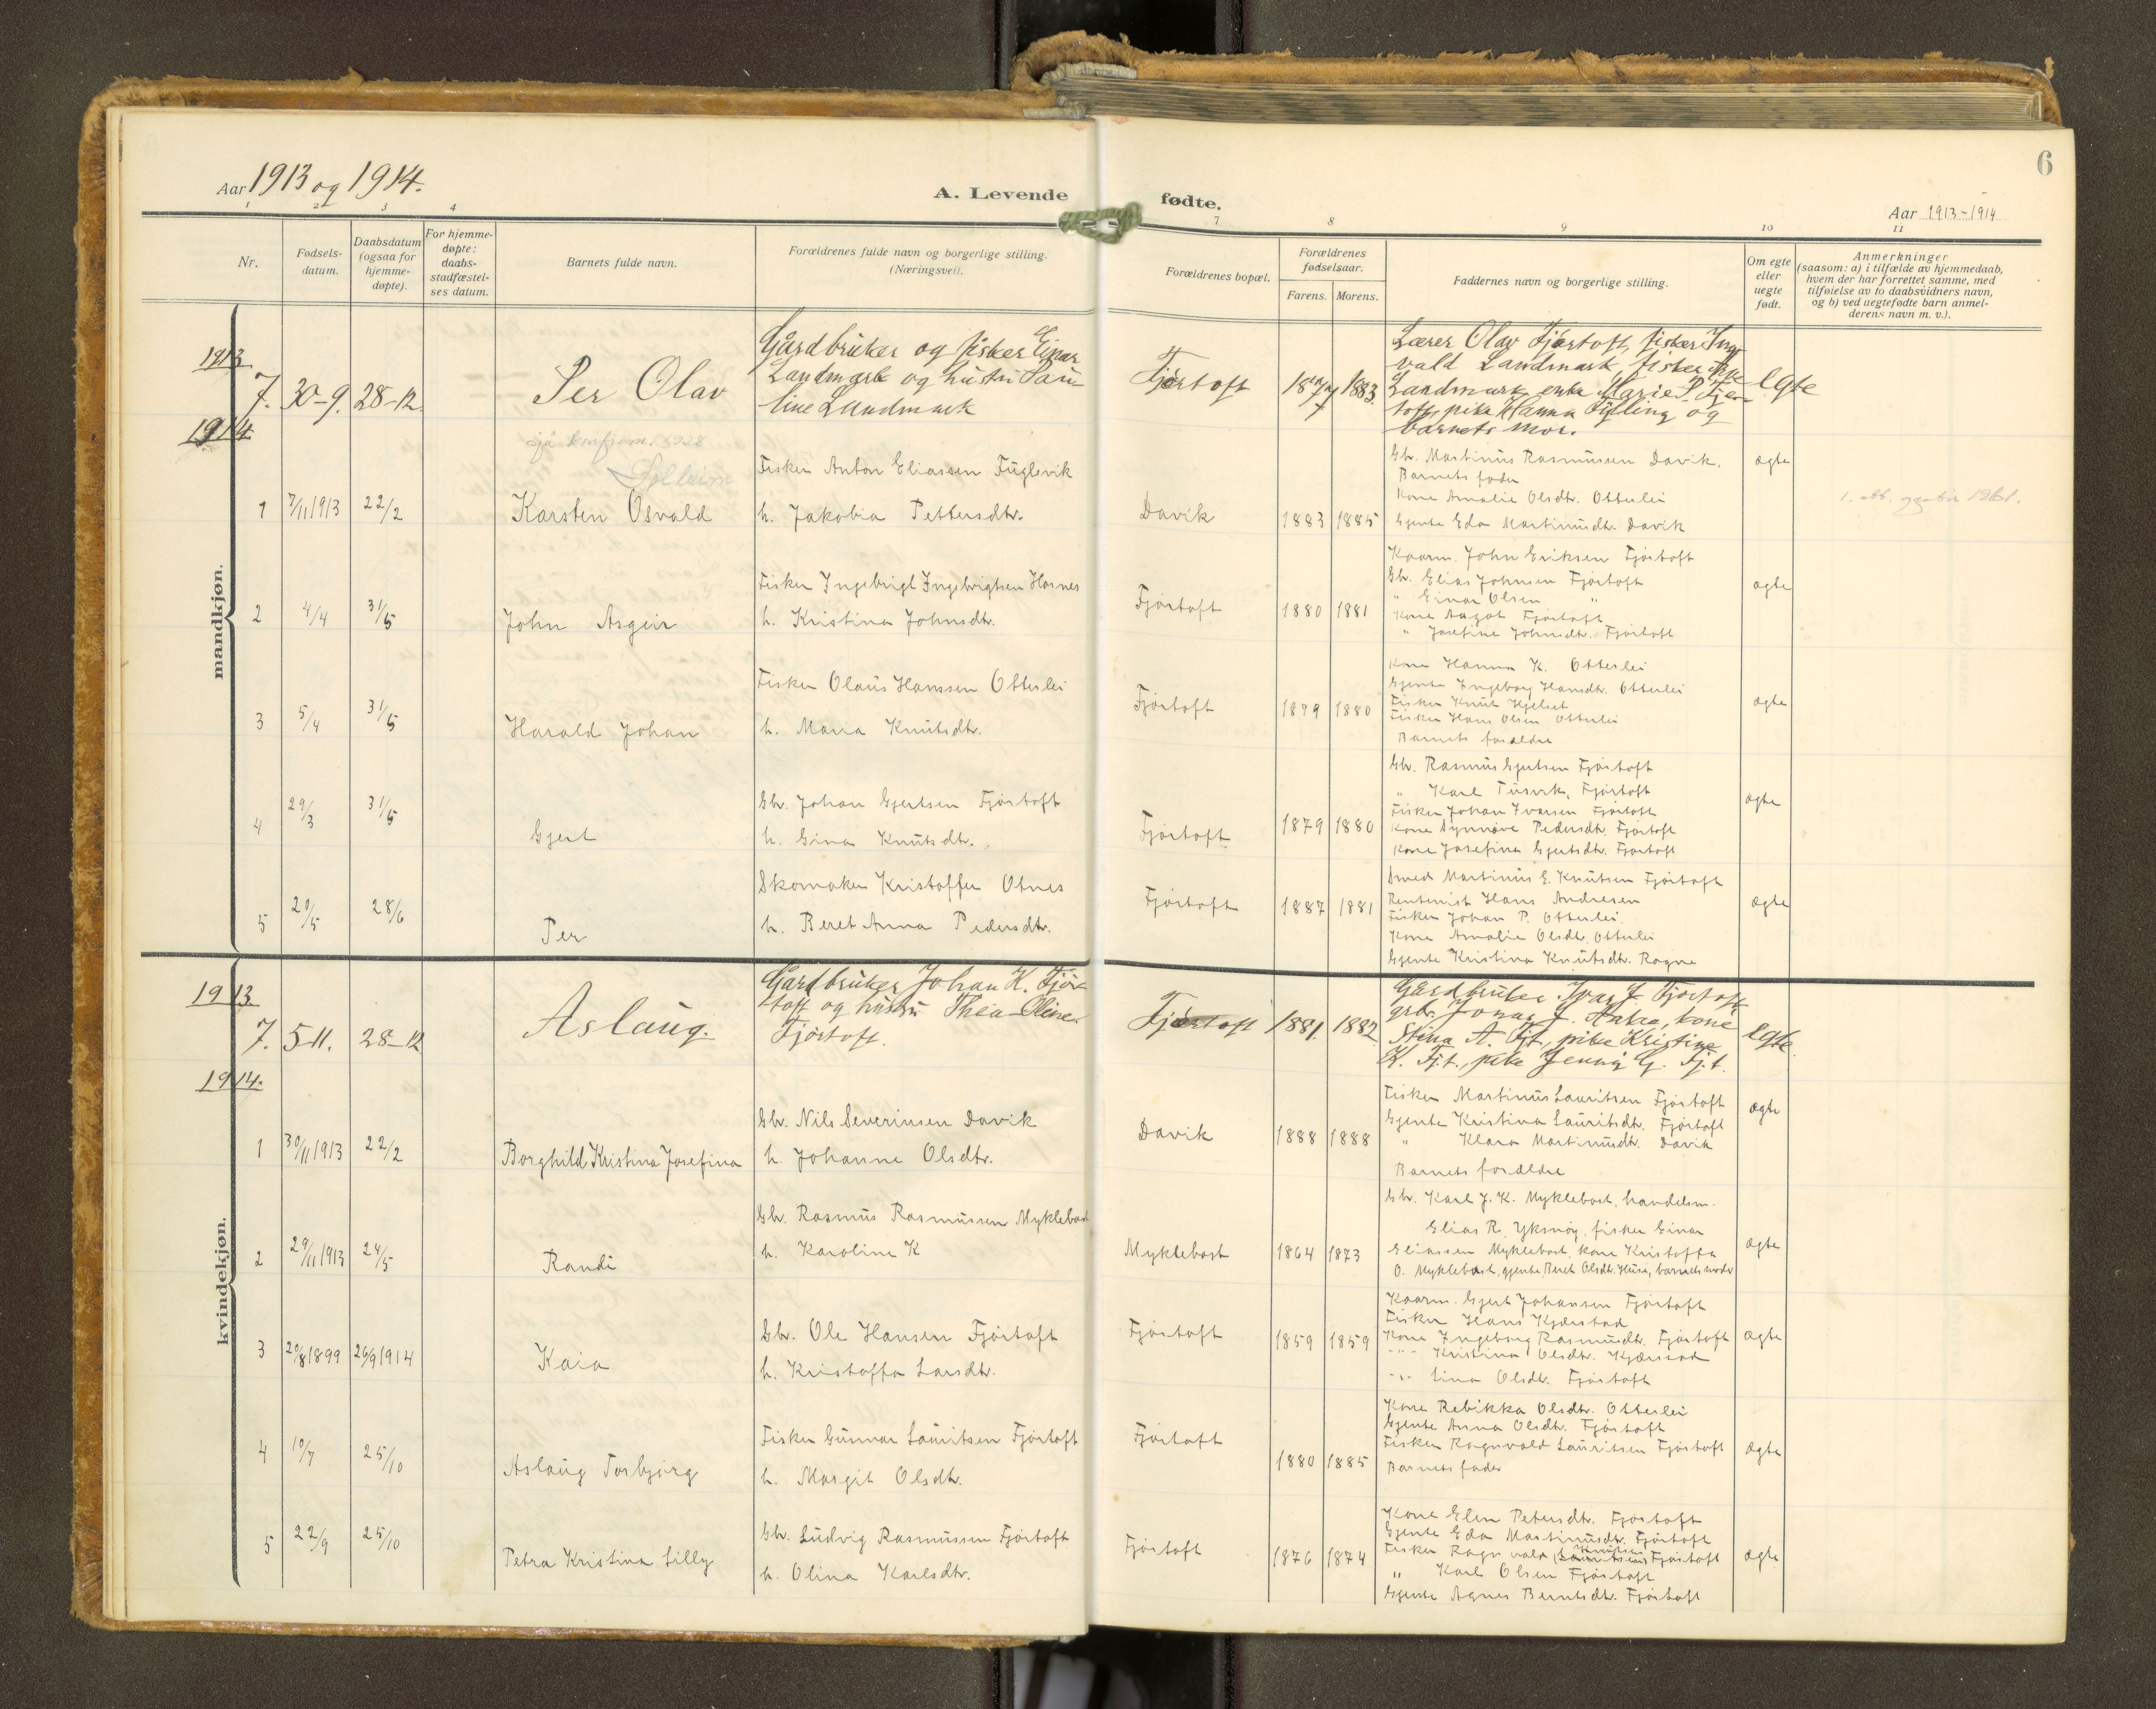 6
Aar 1913 og 1914.
A. Levende fødte.
Aar 1913-1914
1 2 3 4 7 8 9 10 11
Nr.
Fødsels-
datum.
Daabsdatum
(ogsaa for
hjemme-
døpte).
For hjemme-
døpte:
daabs-
stadfæstel-
ses datum.
Barnets fulde navn.
Forældrenes fulde navn og borgerlige stilling.
(Næringsvei).
Forældrenes bopæl.
Forældrenes
fødselsaar.
Farens. Morens.
Faddernes navn og borgerlige stilling.
Om egte
eller
uegte
født.
Anmerkninger
(saasom: a) i tilfælde av hjemmedaab,
hvem der har forrettet samme, med
tilføielse av to daabsvidners navn,
og b) ved uegtefødte barn anmel-
derens navn m. v.).
mandkjøn.
1913
7. 30-9. 28-12.
Per Olav
Gårdbruker og fisker Einar
Landmark og hustru Pau-
line Landmark
Fjørtoft
1877 1883.
Lærer Olav Fjørtoft, fisker Ing-
vald Landmark, fisker
Landmark, enke Marie P. Fjør-
toft, pike Hanna Fylling og
barnets mor.
egte
1914
sjå konfirm. 1928
Solheim
1 7/11 1913 22/2
Karsten Osvald
Fisker Anton Eliassen Fuglevik
h. Jakobia Pettersdtr.
Davik
1883 1885
Gbr. Martinus Rasmussen Davik.
Barnets fader
Kone Amalie Olsdtr. Otterlei
Gjente Eda Martinusdtr. Davik
ægte
1. att. 1961.
2 4/4 31/5
John Asgeir
Fisker Ingebrigt Ingebrigtsen Hosnes
h. Kristina Johnsdtr.
Fjørtoft
1880 1881
Kaarm. John Eriksen Fjørtoft
Gbr. Elias Johnsen Fjørtoft
" Einar Olsen "
Kone Aagot Fjørtoft
" Josefine Johnsdtr. Fjørtoft
ægte
3 5/4 31/5
Harald Johan
Fisker Olaus Hanssen Otterlei
h. Maria Knutsdtr.
Fjørtoft
1879 1880
Kone Hanna K. Otterlei
Gjente Ingeborg Hansdtr. Otterlei
Fisker Knut Hjelset
Fisker Hans Olsen Otterlei
Barnets forældre
ægte
4 29/3 31/5
Gjert
Gbr. Johan Gjertsen Fjørtoft
h. Gina Knutsdtr.
Fjørtoft
1879 1880
Gbr. Rasmus Gjertsen Fjørtoft
" Karl Tusvik, Fjørtoft
Fisker Johan Ivarsen Fjørtoft
Kone Synnøve Pedersdtr. Fjørtoft
Kone Josefina Gjertsdtr. Fjørtoft
ægte
5 20/5 28/6
Per
Skomaker Kristoffer Otnes
h. Beret Anna Pedersdtr.
Fjørtoft
1887 1881
Smed Martinus E. Knutsen Fjørtoft
Rentenist Hans Andresen
Fisker Johan P. Otterlei.
Kone Amalie Olsdtr. Otterlei
Gjente Kristina Knutsdtr. Rogne
ægte
kvindekjøn.
1913
7. 5-11. 28-12
Aslaug.
Gårdbruker Johan K. Fjør-
toft og hustru Thea Oline
Fjørtoft.
Fjørtoft
1881. 1882
Gårdbruker Ivar J. Fjørtoft,
grb. Jonas J. Anke, kone
Stina A. Fjt., pike Kristine
K. Fj.t., pike Jenny G. Fj.t.
egte.
1914.
1 30/11 1913 22/2
Borghild Kristina Josefina
Gbr. Nils Severinsen Davik
h. Johanne Olsdtr.
Davik
1888 1888
Fisker Martinus Lauritsen Fjørtoft
Gjente Kristina Lauritsdtr. Fjørtoft
" Klara Martinusdtr. Davik
Barnets forældre
ægte
2 29/11 1913 24/5
Randi
Gbr. Rasmus Rasmussen Myklebost
h. Karoline K
Myklebost
1864 1873
Gbr. Karl J. K. Myklebost, handelsm.
Elias R. Yksnøy, fisker Einar
Eliassen Myklebost, kone Kristoffa
O. Myklebost, gjente Beret Olsdtr. Huse, barnets moder
ægte
3 20/8 1899 26/9 1914
Kaia
Gbr. Ole Hansen Fjørtoft
h. Kristoffa Larsdtr.
Fjørtoft
1859 1859
Kaarm. Gjert Johansen Fjørtoft
Fisker Hans Kjærstad
Kone Ingeborg Rasmusdtr. Fjørtoft
-"- Kristina Olsdtr. Kjærstad
-"- Lina Olsdtr. Fjørtoft
ægte
4 10/7 25/10
Aslaug Torbjørg
Fisker Gunnar Lauritsen Fjørtoft
h. Margit Olsdtr.
Fjørtoft
1880 1885
Kone Rebikka Olsdtr. Otterlei
Gjente Anna Olsdtr. Fjørtoft
Fisker Ragnvald Lauritsen Fjørtoft
Barnets fader
ægte
5 22/9 25/10
Petra Kristina Lilly
Gbr. Ludvig Rasmussen Fjørtoft
h. Olina Karlsdtr.
Fjørtoft
1876 1874
Kone Elen Petersdtr. Fjørtoft
Gjente Eda Martinusdtr. Fjørtoft
Fisker Ragnvald Knutsen Fjørtoft
" Karl Olsen Fjørtoft
Gjente Agnes Berntsdtr. Fjørtoft
ægte